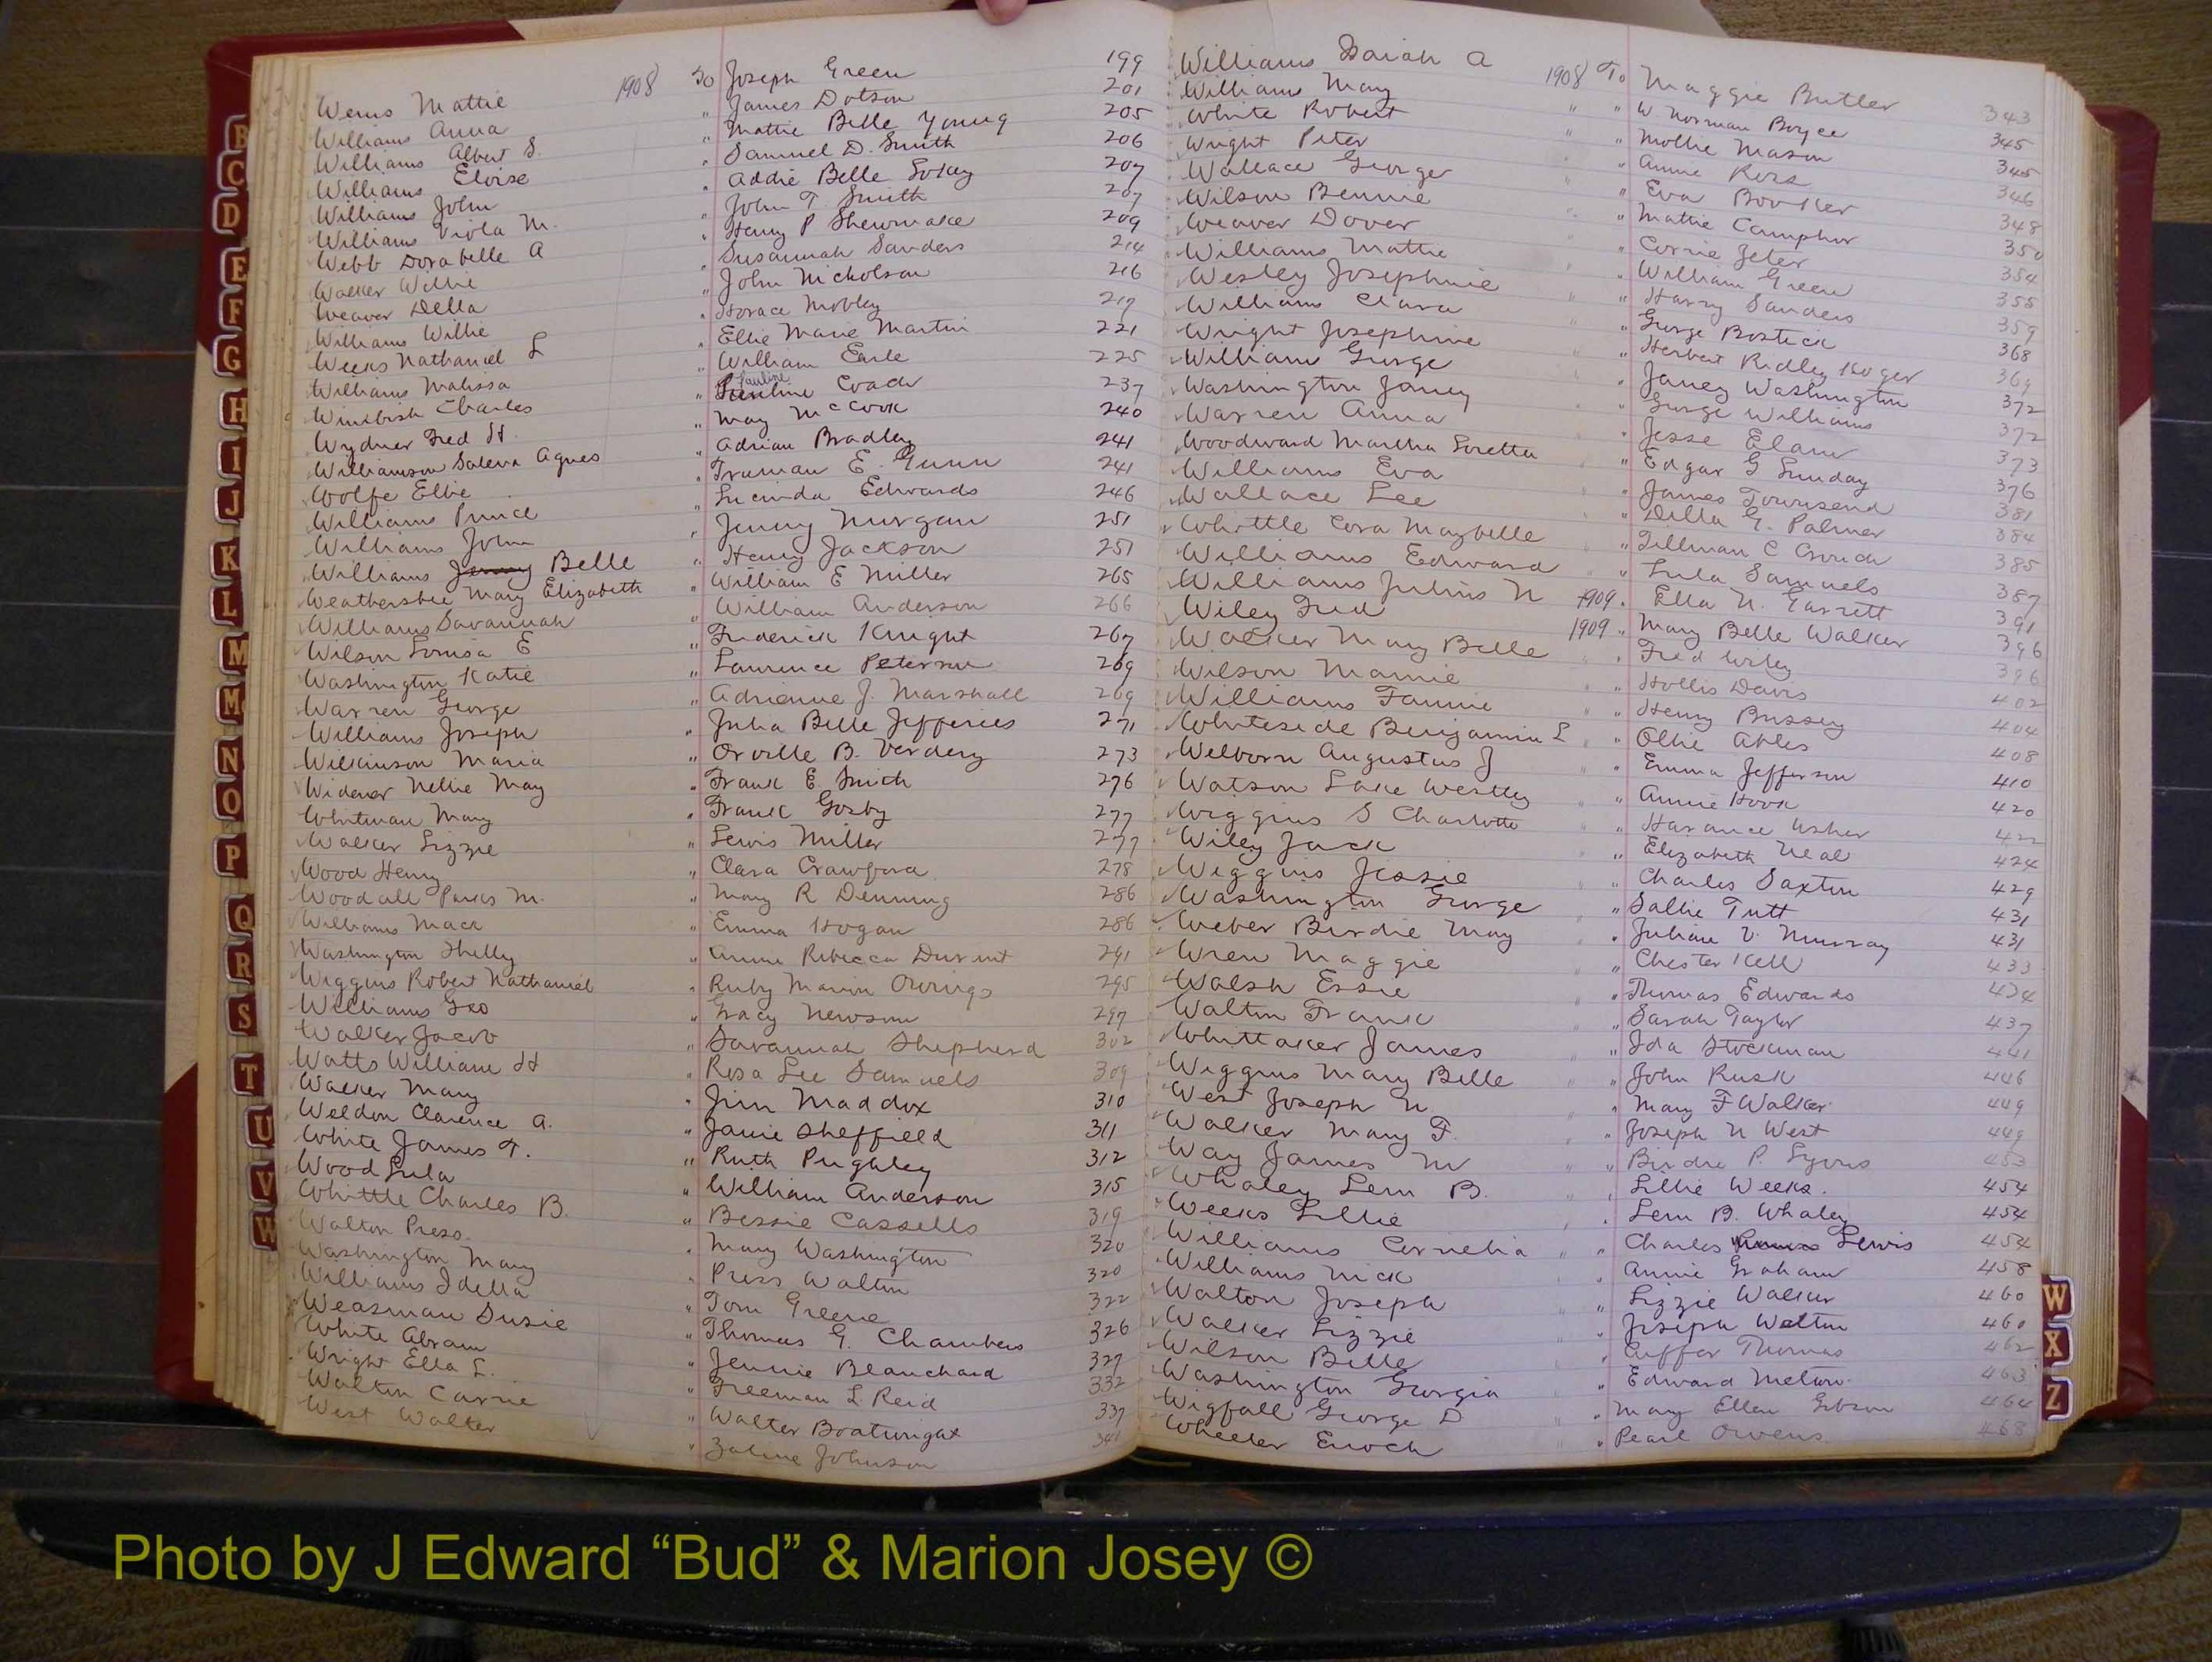 Wems Mattie 1908 To Joseph Green 199
Williams Anna " James Dotson 201
Williams Albert S. " Mattie Belle Young 205
Williams Eloise " Samuel D. Smith 206
Williams John " Addie Belle Lokey 207
Williams Viola M. " John T. Smith 207
Webb Dorabelle A " Henry P Shewmake 209
Walker Willie " Susannah Sanders 214
Weaver Della " John Nicholson 216
Williams Willie " Horace Mobley 217
Weeks Nathaniel L " Ellie Marie Martin 221
Williams Malissa " William Earle 225
Wimbish Charles " Pauline Coach 237
Wydner Fred H. " May McCook 240
Williamson Saleva Agnes " Adrian Bradley 241
Wolfe Ellie " Truman E. Gunn 241
Williams Prince " Lucinda Edwards 246
Williams John " Jenny Morgan 251
Williams Jenny Belle " Henry Jackson 251
Weathersbee Mary Elizabeth " William E Miller 265
Williams Savannah " William Anderson 266
Wilson Louisa E " Frederick Knight 267
Washington Katie " Lawrence Peterson 269
Warren George " Adrienne J. Marshall 269
Williams Joseph " Julia Belle Jefferies 271
Wilkinson Maria " Orville B. Verdery 273
Widener Nellie May " Frank E Smith 276
Whitman Mary " Frank Gosby 277
Walker Lizzie " Lewis Miller 277
Wood Henry " Clara Crawford 278
Woodall Parks M. " Mary R Denning 286
Williams Mack " Emma Hogan 286
Washington Shelly " Annie Rebecca Durent 291
Wiggins Robert Nathaniel " Ruby Marion Owings 295
Williams Geo " Gracy Newsom 297
Walker Jacob " Savannah Shepherd 302
Watts William H " Rosa Lee Samuels 309
Walker Mary " Jim Maddox 310
Weldon Clarence A. " Janie Sheffield 311
White James T. " Ruth Pughley 312
Wood Lula " William Anderson 315
Whittle Charles B. " Bessie Cassells 319
Walton Press. " Mary Washington 320
Washington Mary " Press Walton 320
Williams Idella " Tom Greene 322
Weasman Susie " Thomas G. Chambers 326
White Abram " Jennie Blanchard 327
Wright Ella L. " Freeman L Reid 332
Walton Carrie " Walter Boatwright 337
West Walter " Zaline Johnson 341
Williams Isaiah A 1908 To Maggie Butler 343
Williams May " " W. Norman Boyce 345
White Robert " " Mollie Mason 345
Wright Peter " " Annie Ross 346
Wallace George " " Eva Booker 348
Wilson Bennie " " Mattie Camphor 350
Weaver Dover " " Corrie Jeter 354
Williams Mattie " " William Green 355
Wesley Josephine " " Harry Sanders 359
Williams Clara " " George Bostick 368
Wright Josephine " " Herbert Ridley Koger 369
William George " " Janey Washington 372
Washington Janey " " George Williams 372
Warren Anna " " Jesse Elam 373
Woodward Martha Loretta " " Edgar G Lunday 376
Williams Eva " " James Townsend 381
Wallace Lee " " Della G. Palmer 384
Whittle Cora Maybelle " " Tillman C Crouch 385
Williams Edward " " Lula Samuels 387
Williams Julius N 1909 " Ella N. Garrett 391
Wiley Fred 1909 " Mary Belle Walker 396
Walker Mary Belle " " Fred Wiley 396
Wilson Mamie " " Hollis Davis 402
Williams Fannie " " Henry Bussey 404
Whiteside Benjamin L " " Ollie Ables 408
Welborn Augustus J " " Emma Jefferson 410
Watson Luke Westley " " Annie Hook 420
Wiggins S Charlotte " " Usher 422
Wiley Jack " " Elizabeth Neal 424
Wiggins Jessie " " Charles Saxton 429
Washington George " " Sallie Tutt 431
Weber Birdie May " " Julian V. Murray 431
Wren Maggie " " Chester Kell 433
Walsh Essie " " Thomas Edwards 434
Walton Frank " " Sarah Taylor 437
Whittaker James " " Ida Stockman 441
Wiggins Mary Belle " " John Rusk 446
West Joseph N " " Mary F Walker 449
Walker Mary F. " " Joseph N West 449
Way James M " " Birdie P. Lyons 453
Whaley Lem B. " " Lillie Weeks. 454
Weeks Lillie " " Lem B. Whaley 454
Williams Cornelia " " Charles Lewis 454
Williams Nick " " Annie Graham 458
Walton Joseph " " Lizzie Walker 460
Walker Lizzie " " Joseph Walton 460
Wilson Belle " " Thomas 462
Washington Georgia " " Edward Melton. 463
Wigfall George D " " Mary Ellen Gibson 464
Wheeler Enoch " " Pearl Owens. 468
B
C
D
E
F
G
H
I
J
K
L
M
M
N
O
P
Q
R
S
T
U
V
W
W
X
Z
Photo by J Edward “Bud” & Marion Josey ©